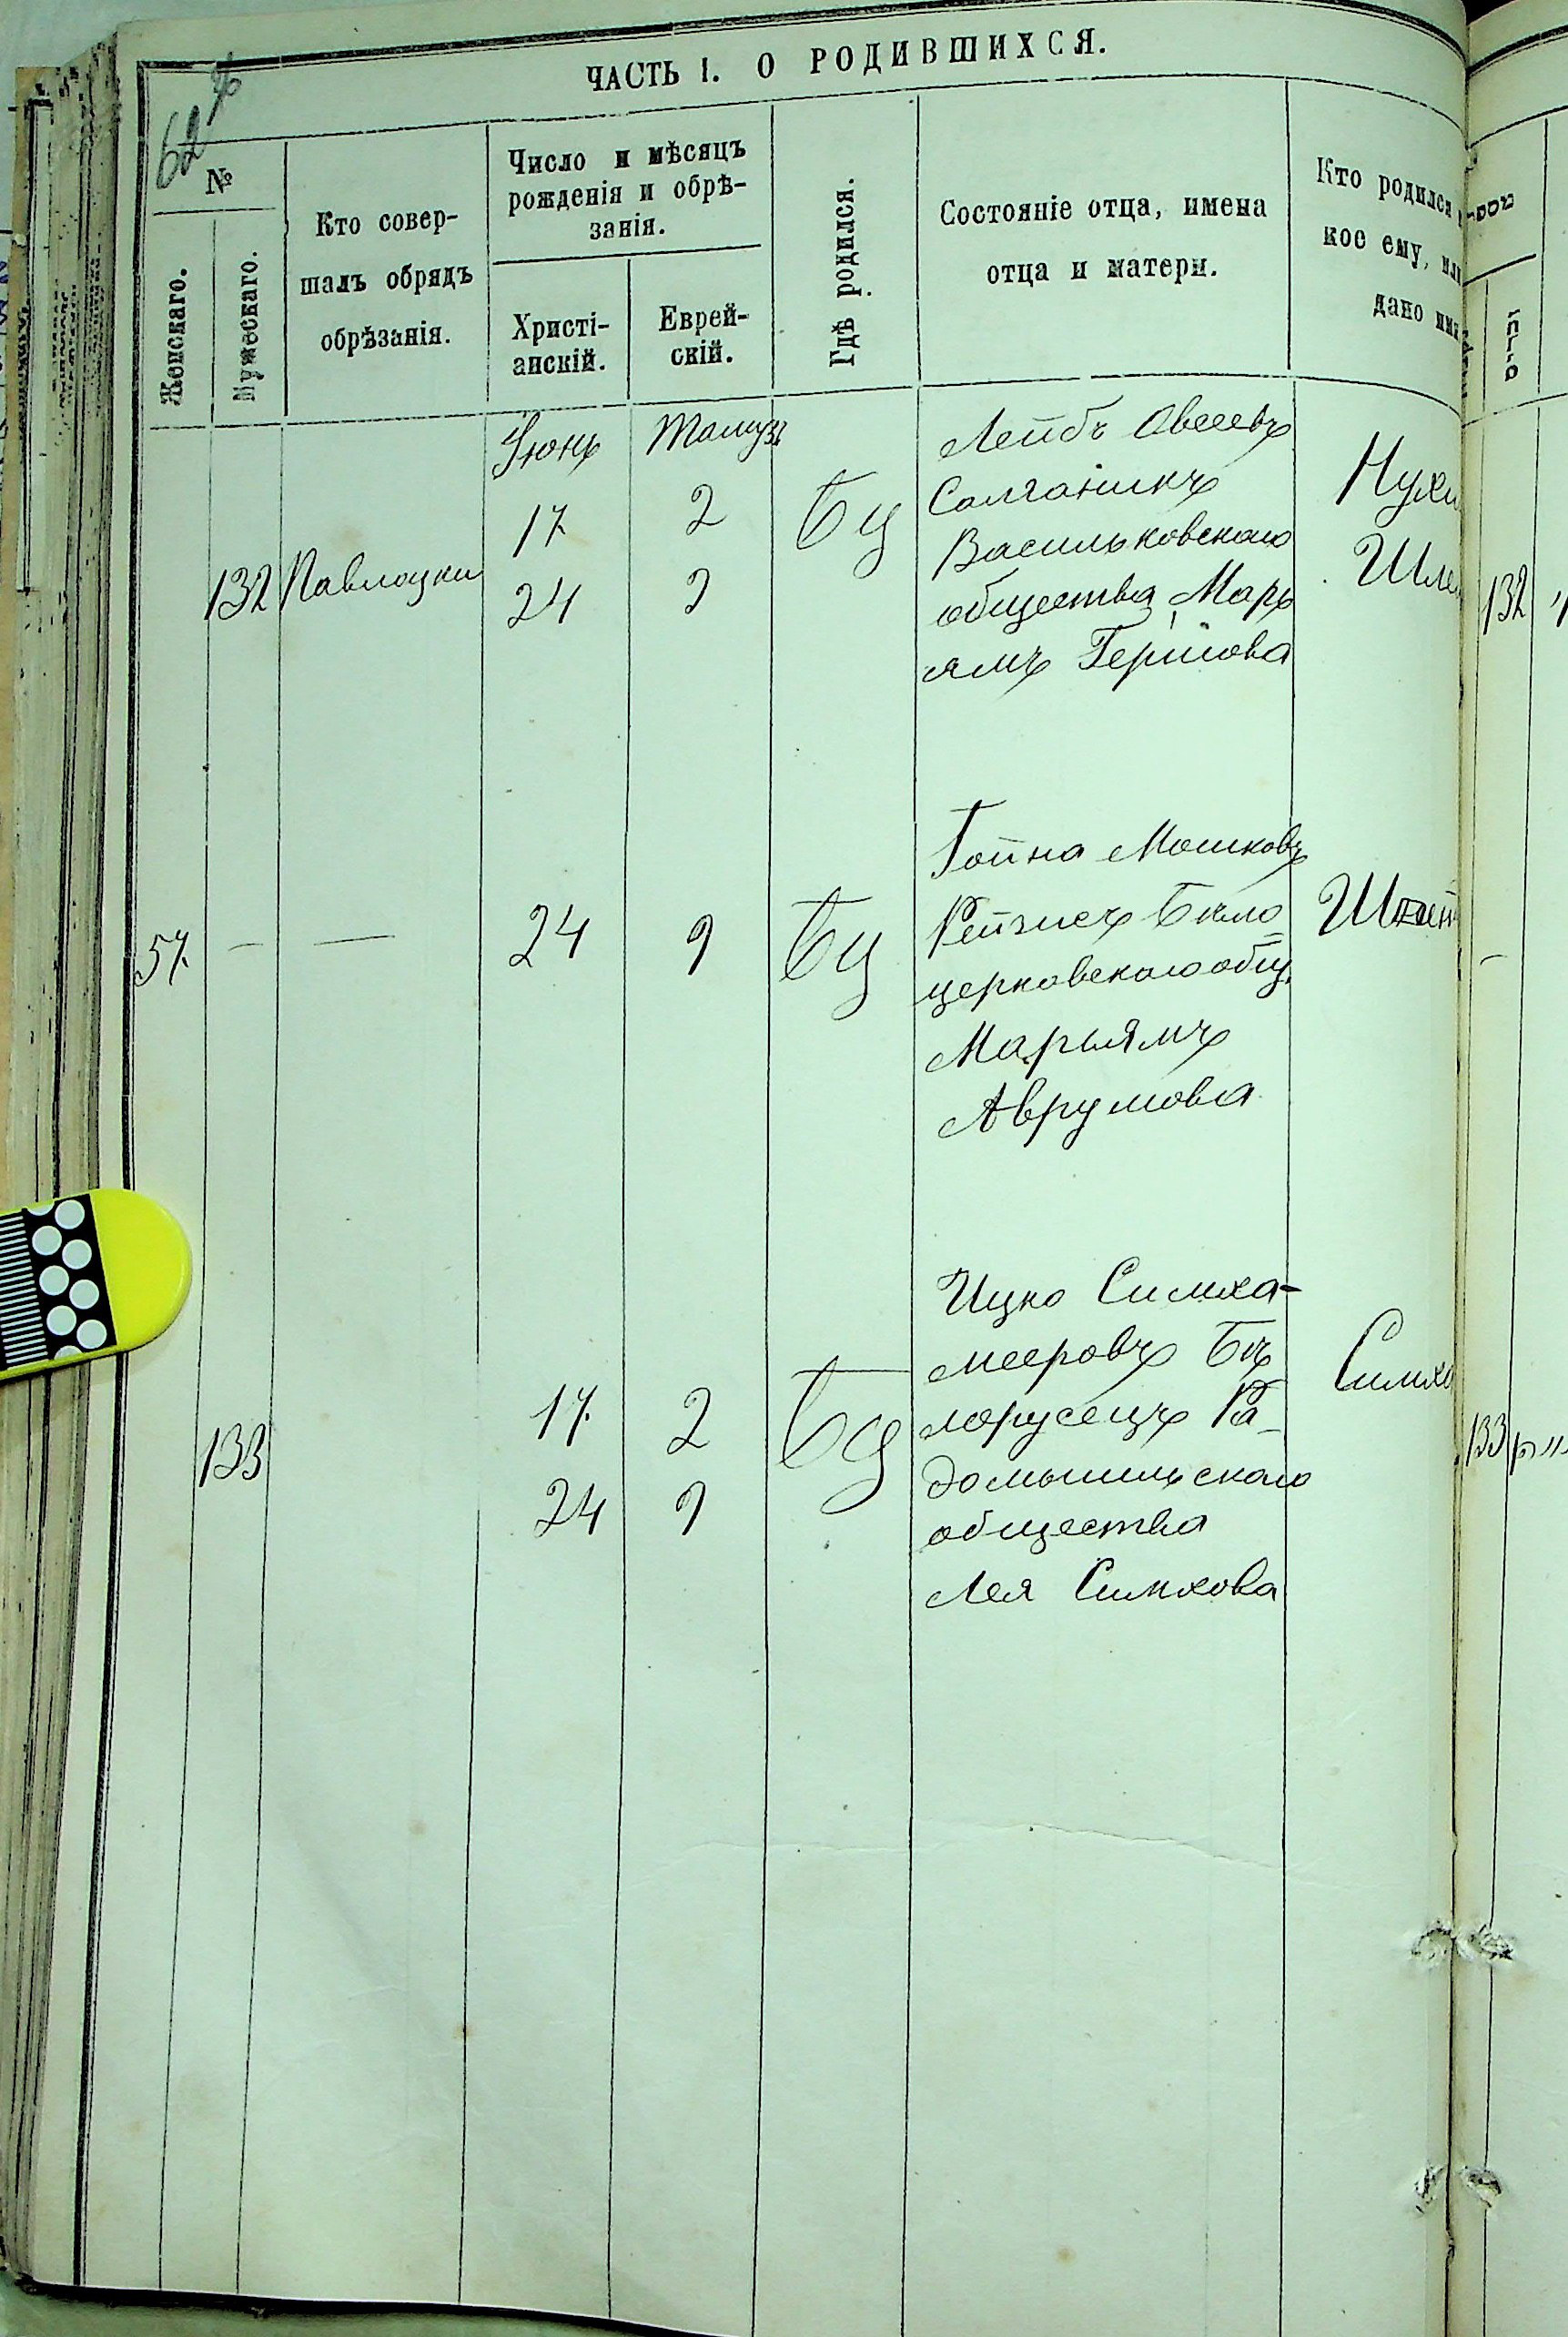 ЧАСТЬ I. О РОДИВШИХСЯ.
62
№
Женскаго.
Мужескаго.
Кто совер-
шалъ обрядъ
обрѣзанія.
Число и мѣсяцъ
рожденія и обрѣ-
занія.
Христі-
анскій.
Еврей-
скій.
Гдѣ родился.
Состояніе отца, имена
отца и матери.
Кто родился
кое ему, или
дано имя
Іюнь Тамузъ
132
17 2
24 9
Бц
Лейбъ Овсеевъ
Салганикъ
Васильковскаго
общества Марь
ямъ Гершова
Нухи
Шле
132
57 — —
24 9
Бц
Гойна Мошковъ
Рейзисъ Бѣло
церковскаго общ.
Марьямъ
Аврумова
—
133
17 2
24 9
Бц
Ицко Симха-
мееровъ Бѣ
лорусецъ Ра-
домысльскаго
общества
Лея Симхова
Симха
133